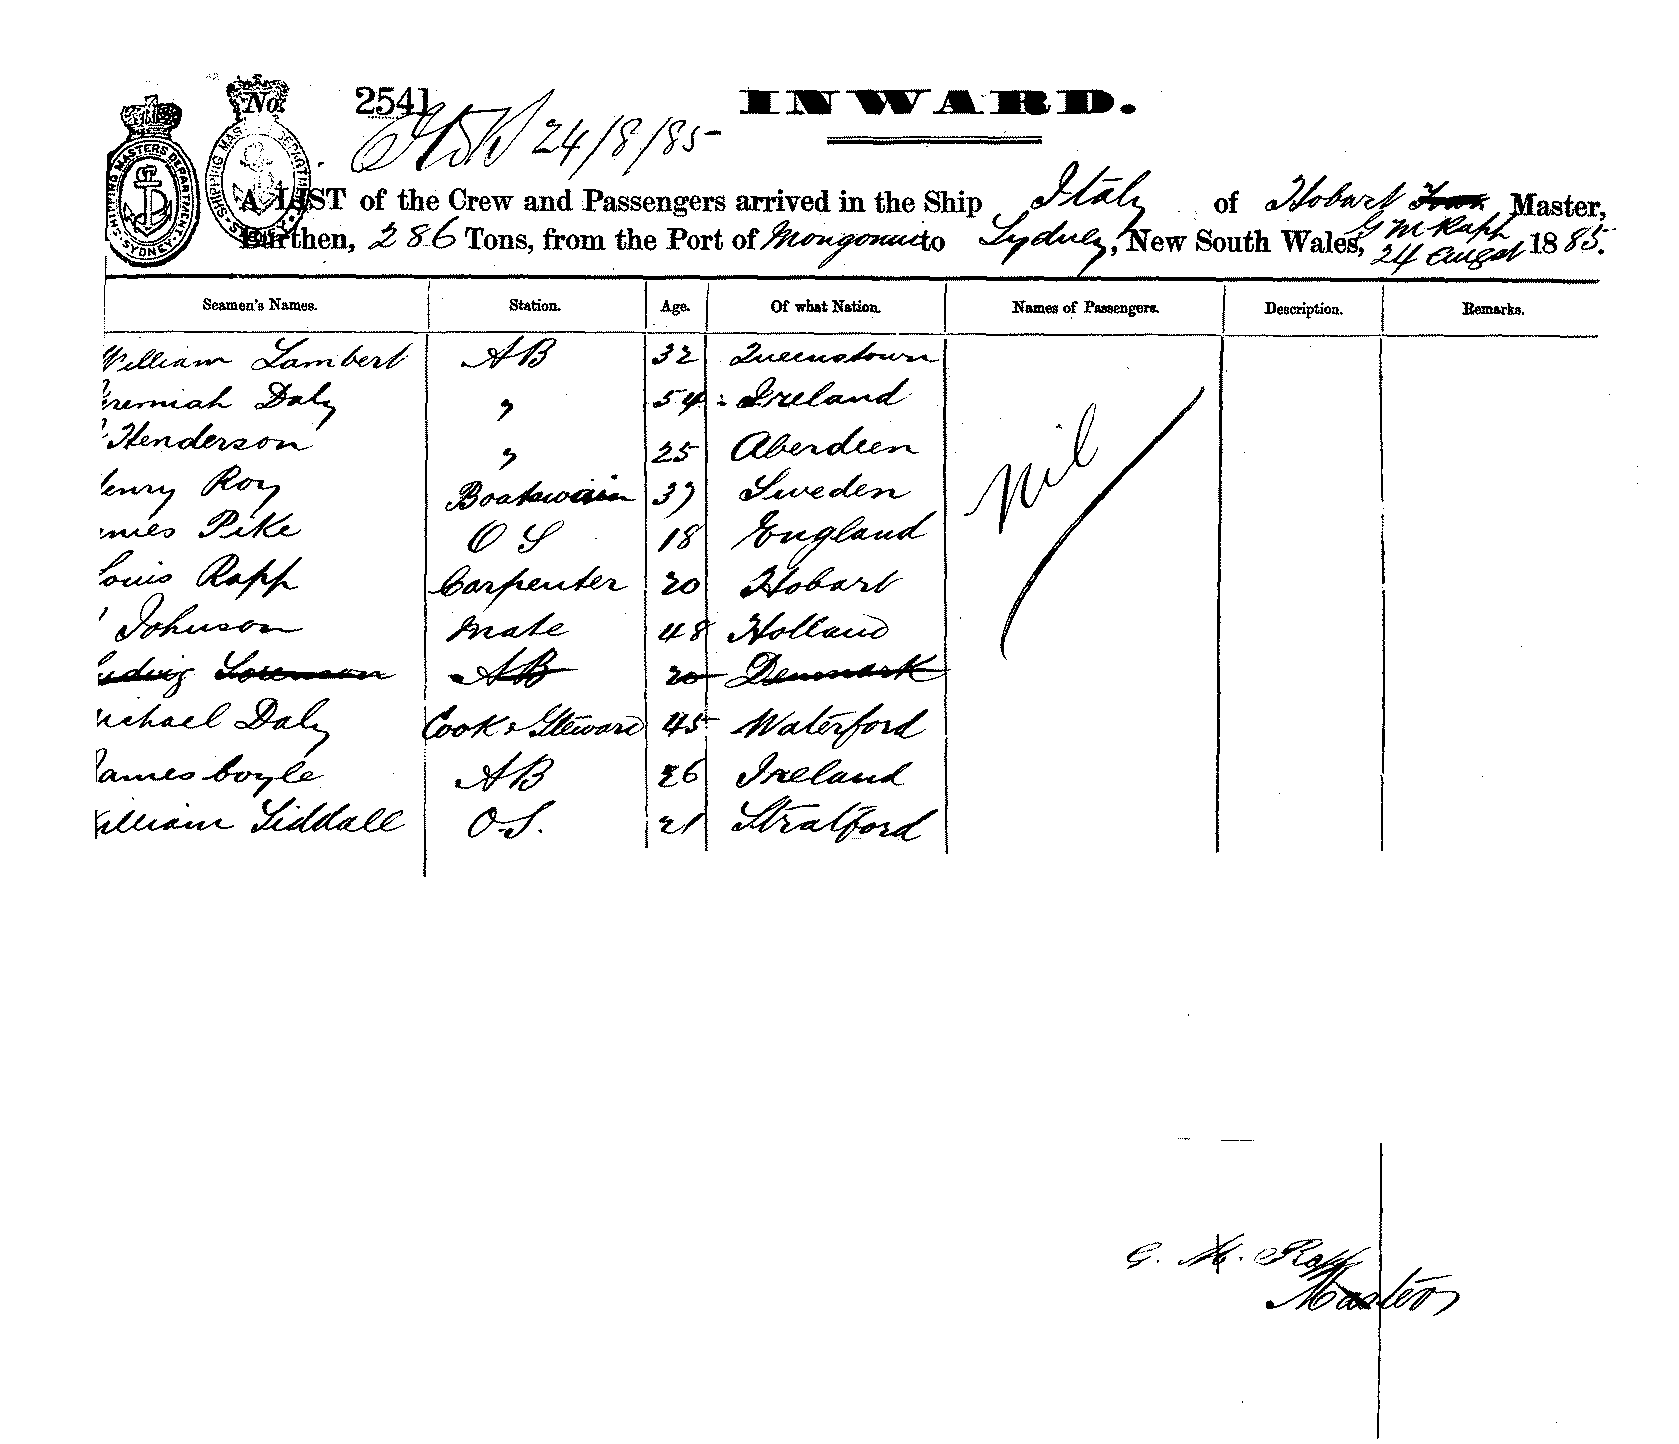 No. 2541
24/8/85
INWARD.
SHIPPING MASTERS DEPARTMENT SYDNEY
A LIST of the Crew and Passengers arrived in the Ship Italy of Hobart Master,
G M Rapp
Burthen, 286 Tons, from the Port of Mongonui to Sydney, New South Wales, 24 Augst 1885.
Seamen's Names. Station. Age. Of what Nation. Names of Passengers. Description. Remarks.
William Lambert AB 32 Queenstown
eremiah Daly " 54 Ireland
Henderson " 25 Aberdeen
enry Roy Boatswain 37 Sweden
ames Pike O S 18 England
Louis Rapp Carpenter 20 Hobart
Johnson Mate 48 Holland
udwig Sorenson AB 20 Denmark
ichael Daly Cook & Steward 45 Waterford
James Coyle AB 26 Ireland
William Siddall O.S. 21 Stratford
Nil
G. M. Rapp
Master